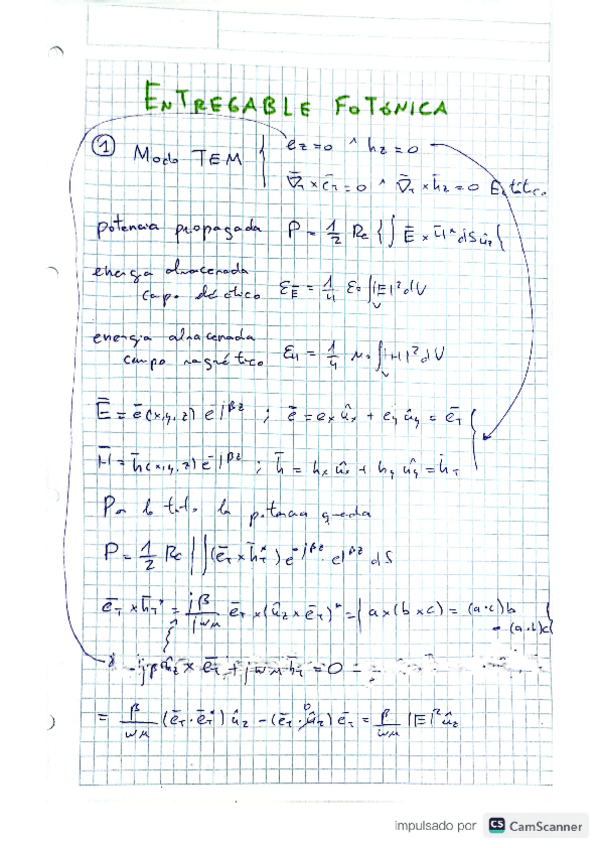 ENTREGABLE FOTÓNICA
① Modo TEM { e_z = 0 ^ h_z = 0
∇̄_T × ē_T = 0 ^ ∇̄_T × h̄_z = 0
potencia propagada P = 1/2 Re { ∫ Ē × H̄* dS û_z {
energía almacenada
campo eléctrico ε_Ē = 1/4 ε₀ ∫_V |E|² dV
energia almacenada
campo magnético ε_H = 1/4 μ₀ ∫_V |H|² dV
Ē = ē(x,y,z) e^-jβz ; ē = e_x û_x + e_y û_y = ē_T
H̄ = h̄(x,y,z) e^-jβz ; h̄ = h_x û_x + h_y û_y = h̄_T
Por lo tanto la potencia queda
P = 1/2 Re ∫∫ (ē_T × h̄_T*) e^-jβz · e^jβz dS
ē_T × h̄_T* = jβ/jωμ ē_T × (û_z × ē_T)* = { a × (b × c) = (a·c)b
- (a·b)c {
jβû_z × ē_T + jωμ h̄_T = 0
= β/ωμ (ē_T · ē_T*) û_z - (ē_T · û_z) ē_T = β/ωμ |E|² û_z
impulsado por CS CamScanner